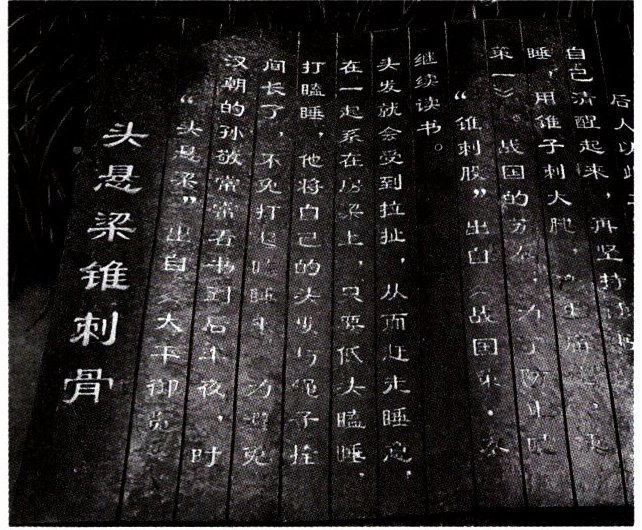 头悬梁锥刺骨
“头悬梁”出自《太平御览
汉朝的孙敬常常看书到后半夜，时
间长了，不免打起瞌睡来 为避免
打瞌睡，他将自己的头发与绳子拴
在一起系在房梁上，只要低头瞌睡，
头发就会受到拉扯，从而赶走睡意，
继续读书。
“锥刺股”出自《战国策·秦
策一》。战国的苏秦，为了防止瞌
睡，用锥子刺大腿，产生痛
自己清醒起来，再坚持
后人以此